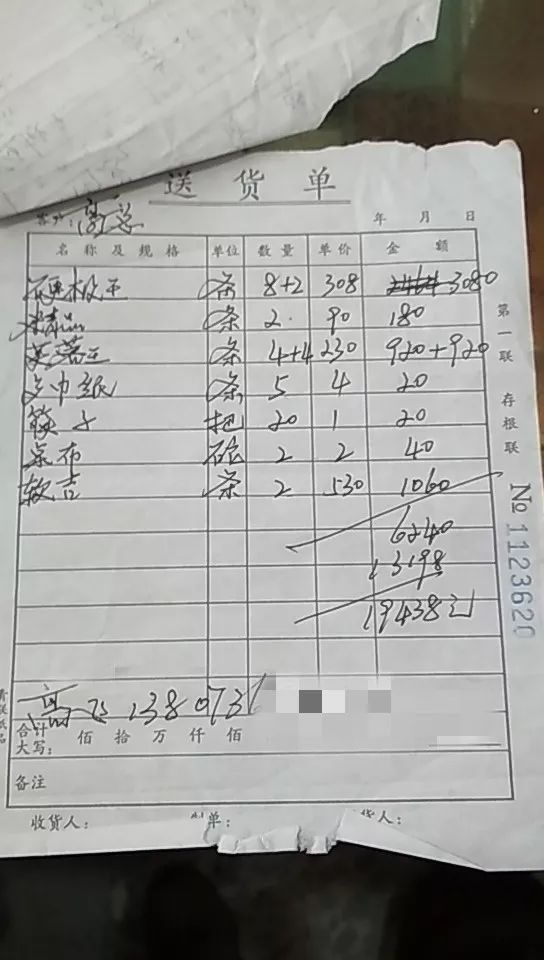 送货单
客户：高总
年 月 日
名称及规格 单位 数量 单价 金额
硬极王 条 8+2 308 2464 3080
精品 条 2 90 180
芙蓉王 条 4+4 230 920+920
纸 条 5 4 20
筷子 把 20 1 20
桌布 2 2 40
软吉 条 2 530 1060
6240
13198
19438元
第一联 存根联
№1123620
高 1380731
合计
大写： 佰 拾 万 仟 佰
备注
收货人： 制单： 货人：